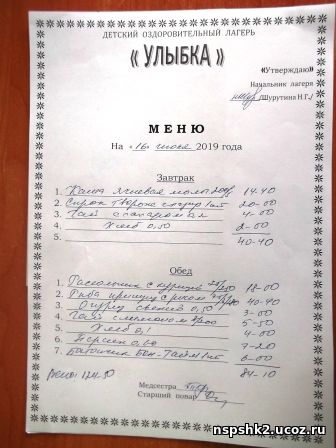 ДЕТСКИЙ ОЗДОРОВИТЕЛЬНЫЙ ЛАГЕРЬ
« УЛЫБКА »
«Утверждаю»
Начальник лагеря
/Шурутина Н.Г./
МЕНЮ
На «16» июля 2019 года
Завтрак
1. Каша ячневая мол 200 14-40
2. Сырок творож 1шт 20-00
3. Чай с сахаром 4-00
4. Хлеб 0,50 2-00
5. 40-40
Обед
1. Рассольник с курицей 18-00
2. Рыба припущ с рисом 40-40
3. Огурец свежий 0,50 3-00
4. Чай с лимоном 200 5-50
5. Хлеб 0,1 4-00
6. 0,60 7-20
7. Батончик 1шт 6-00
84-10
Всего: 124-50
Медсестра
Старший повар
nspshk2.ucoz.ru